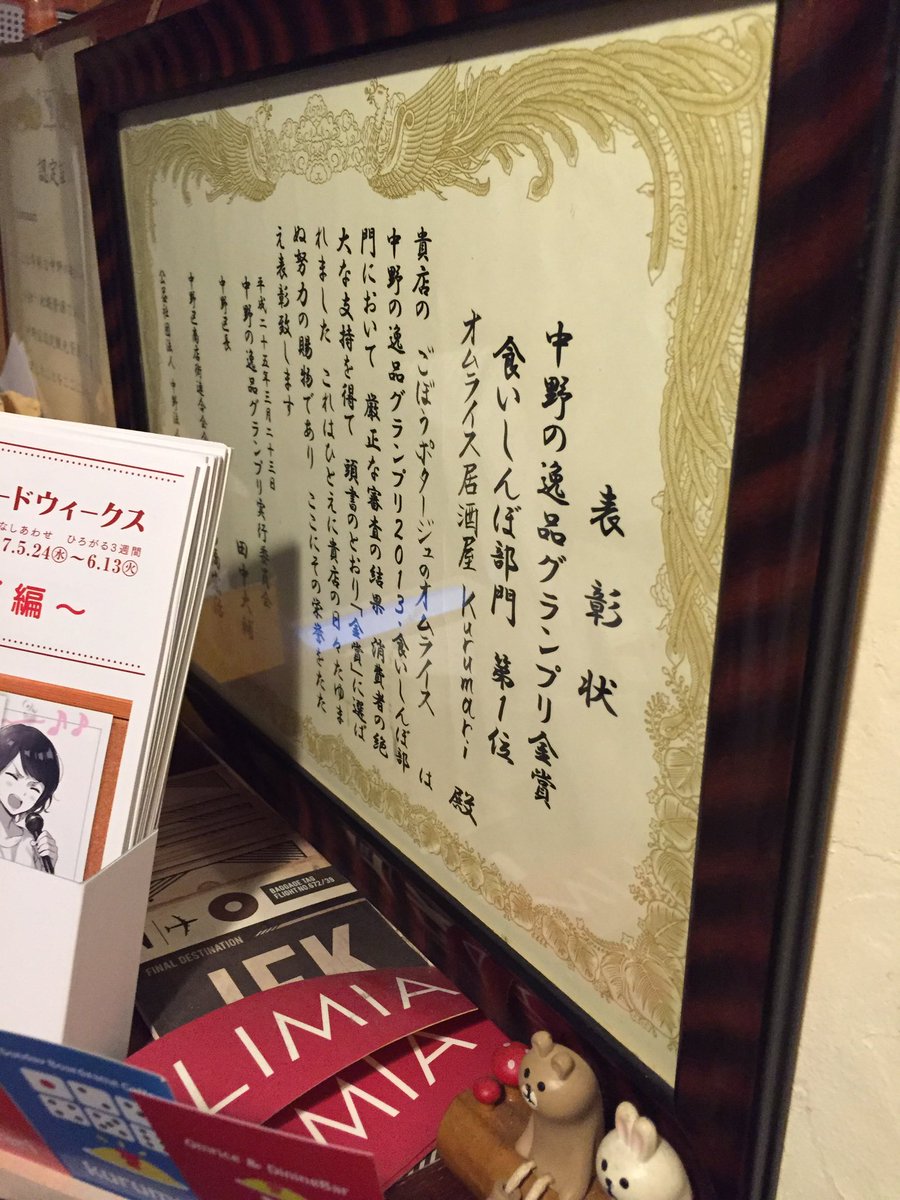 表彰状
中野の逸品グランプリ金賞
食いしんぼ部門 第1位
オムライス居酒屋 Kurumari 殿
貴店の ごぼうポタージュのオムライス は
中野の逸品グランプリ2013、食いしんぼ部
門において 厳正な審査の結果 消費者の絶
大な支持を得て 頭書のとおり「金賞」に選ば
れました これはひとえに貴店の日々たゆま
ぬ努力の賜物であり ここにその栄誉をたた
え表彰致します
平成二十五年三月二十三日
中野の逸品グランプリ実行委員会
中野区長 田中大輔
中野区商店街連合会会
公益社団法人 中野法
ードウィークス
なしあわせ ひろがる3週間
7.5.24㊌〜6.13㊋
編〜
BAGGAGE TAG
FLIGHT NO.672/39
FINAL DESTINATION
JFK
LIMIA
MIA
kuruma
Omrice & DiningBar